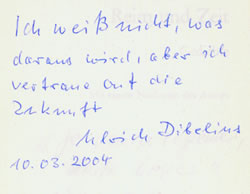 Ich weiß nicht, was
daraus wird, aber ich
vertraue auf die
Zukunft
Ulrich Dibelius
10.03.2004